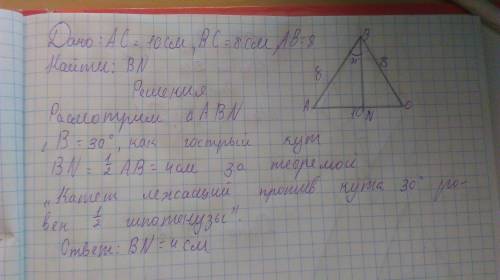 Дано: AC = 10 см, BC = 8 см, AB = 8
Найти: BN
Решения
Расмотрим ΔABN
∠B = 30°, как гострый кут
BN = 1/2 AB = 4 см за теоремой
„Катет лежащий против кута 30° ро-
вен 1/2 гипотенузы".
Ответ: BN = 4 см
B
8
8
A
10
N
C